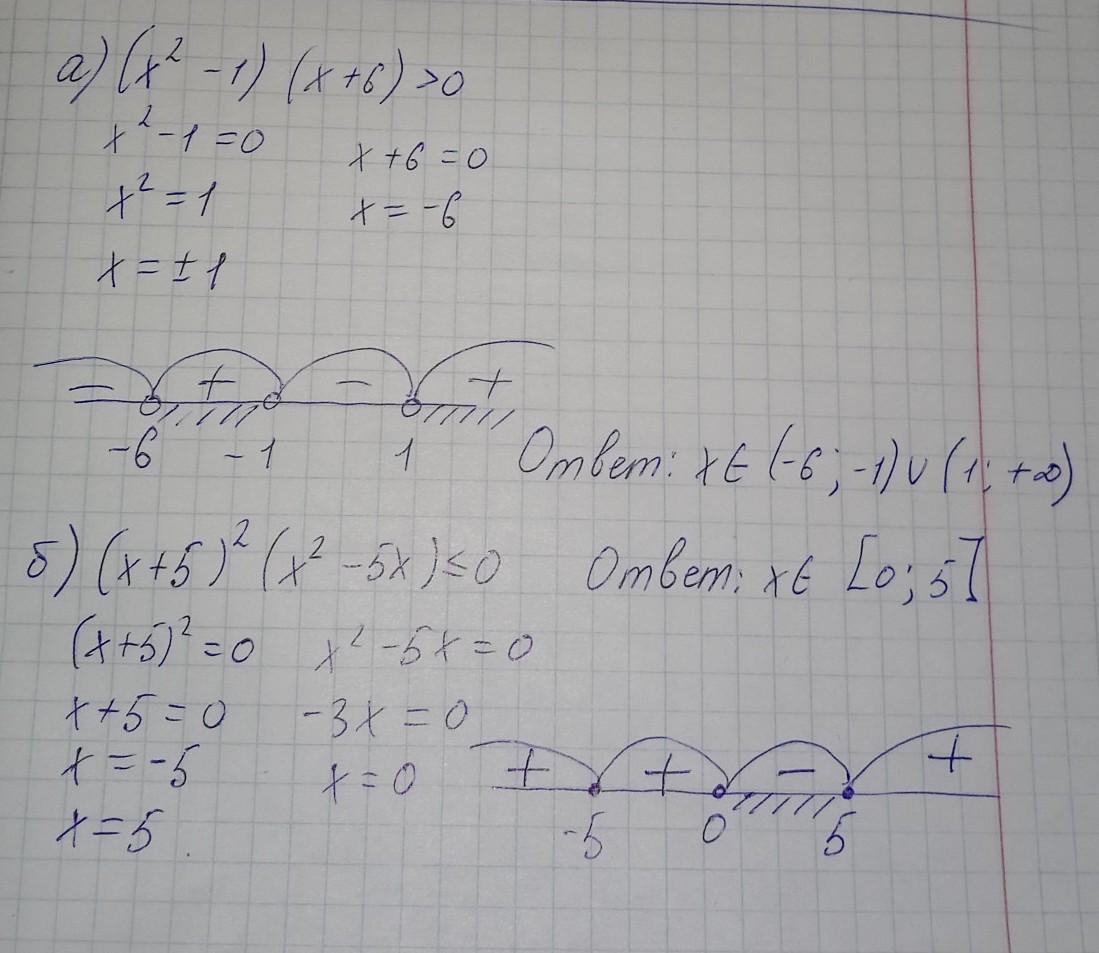 а) (x² - 1) (x + 6) > 0
x² - 1 = 0    x + 6 = 0
x² = 1    x = -6
x = ± 1
= + - +
-6 -1 1
Ответ: x ∈ (-6 ; -1) ∪ (1; +∞)
б) (x+5)² (x² - 5x) ≤ 0    Ответ: x ∈ [0; 5]
(x+5)² = 0    x² - 5x = 0
x + 5 = 0    -3x = 0
x = -5    x = 0
x = 5
+ + - +
-5 0 5